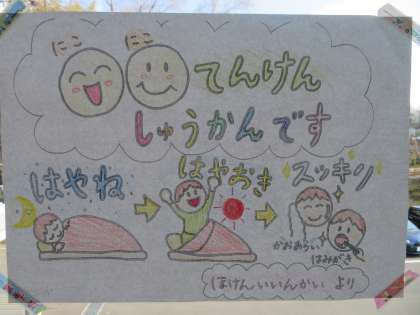 にこ にこ
てんけん
しゅうかんです
はやね
はやおき
スッキリ
かおあらい
はみがき
ほけんいいんかい より